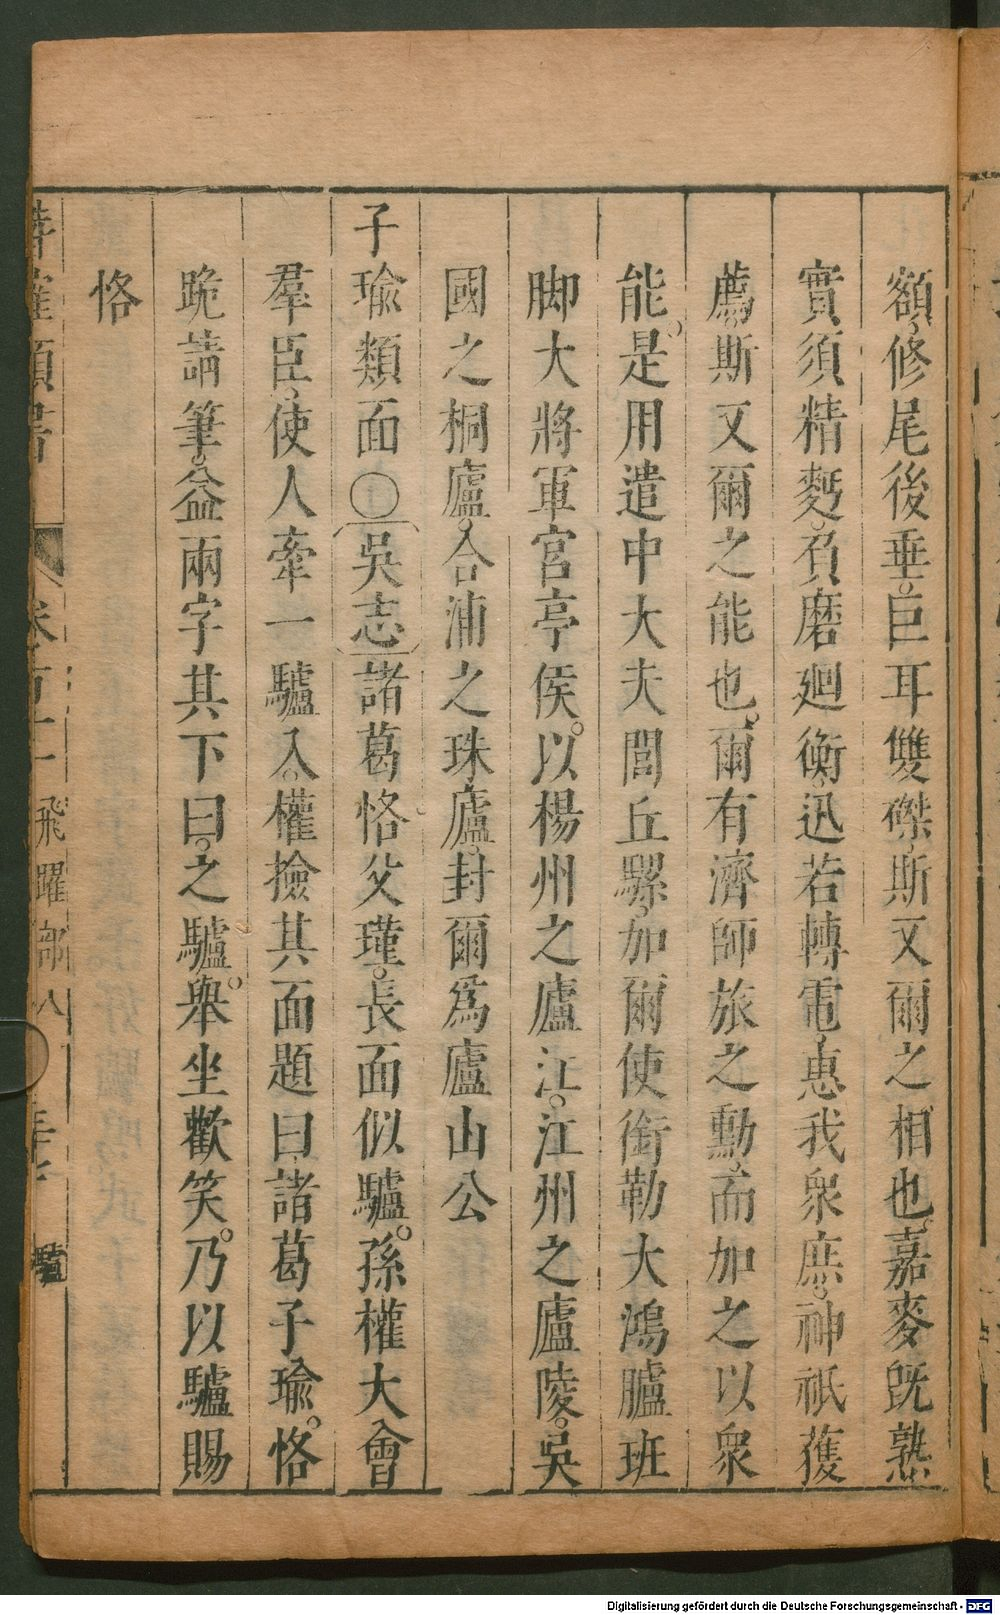 額修尾後垂巨耳雙磔斯又爾之相也嘉麥旣熟
實須精麪負磨廻衡迅若轉電惠我衆庶神祇獲
薦斯又爾之能也爾有濟師旅之勳而加之以衆
能是用遣中大夫閭丘騾加爾使銜勒大鴻臚班
脚大將軍宮亭侯以楊州之廬江江州之廬陵吳
國之桐廬合浦之珠廬封爾爲廬山公
子瑜類面〇吳志諸葛恪父瑾長面似驢孫權大會
羣臣使人牽一驢入權撿其面題曰諸葛子瑜恪
跪請筆益兩字其下曰之驢舉坐歡笑乃以驢賜
恪
飛躍部八 驢
Digitalisierung gefördert durch die Deutsche Forschungsgemeinschaft - DFG